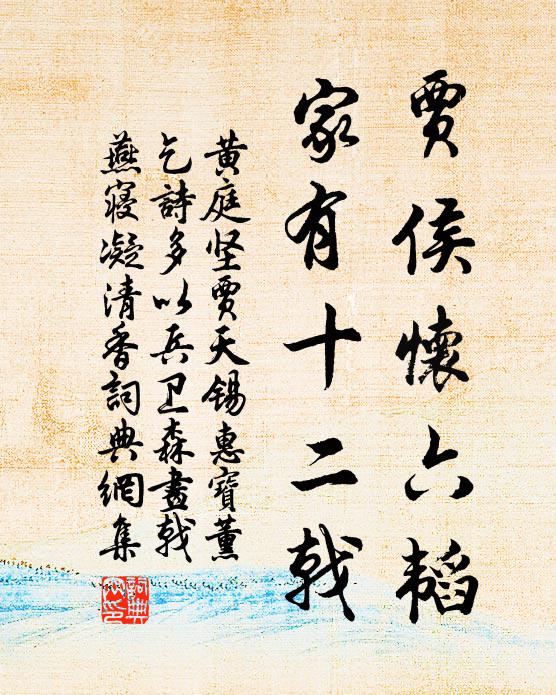 贾侯懷六韬
家有十二戟
黄庭坚贾天锡惠寶薰
乞詩多以兵卫森畫戟
燕寝凝清香詞典網集